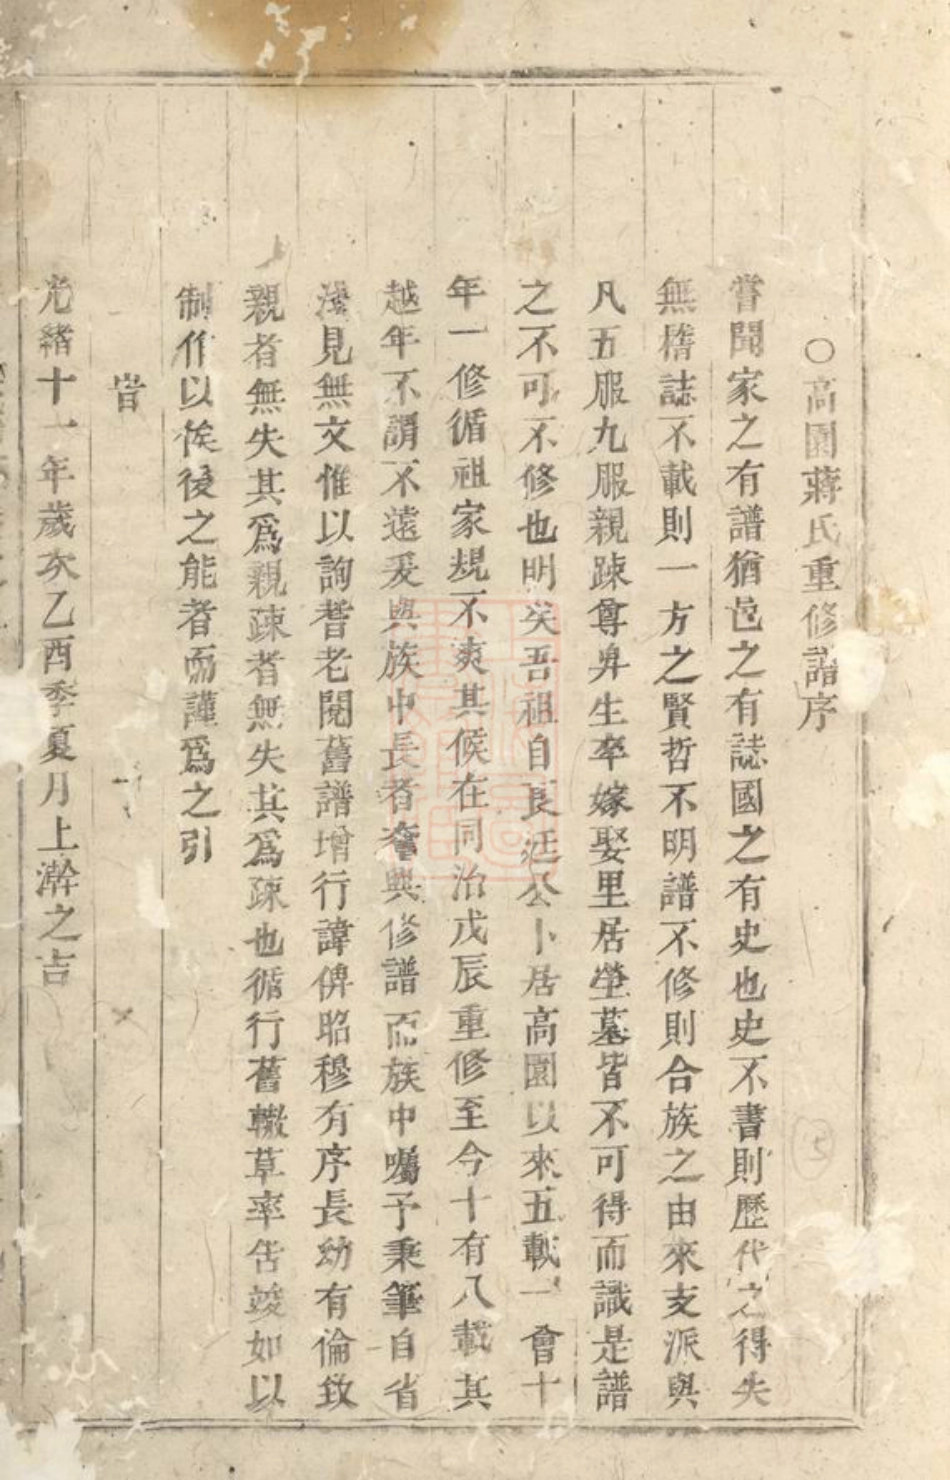 ○高園蔣氏重修譜序
嘗聞家之有譜猶邑之有誌國之有史也史不書則歷代之得失
無稽誌不載則一方之賢哲不明譜不修則合族之由來支派與
凡五服九服親踈尊卑生卒嫁娶里居塋墓皆不可得而識是譜
之不可不修也明矣吾祖自長汪公卜居高園以來五載一會十
年一修循祖家規不爽其候在同治戊辰重修至今十有八載其
越年不謂不遠爰與族中長者奮興修譜而族中囑予秉筆自省
淺見無文惟以詢耆老閱舊譜增行諱俾昭穆有序長幼有倫致
親者無失其為親疎者無失其為疎也循行舊轍草率告竣如以
制作以俟後之能者而謹為之引
旹
光緒十一年歲次乙酉季夏月上澣之吉